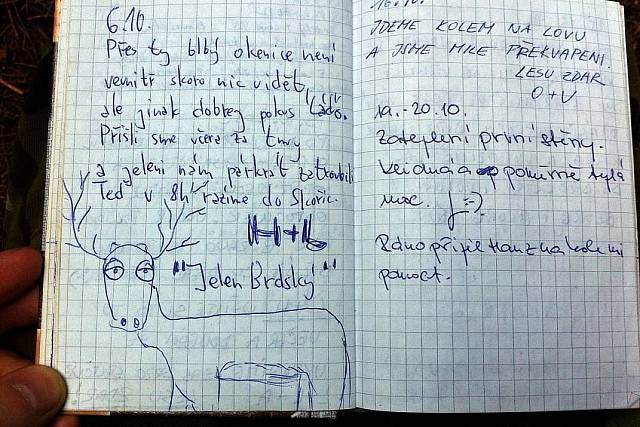 6.10.
Přes ty blbý okenice není
vevnitř skoro nic vidět,
ale jinak dobrej pokus Láďo.
Přišli sme včera za tmy
a jeleni nám párkrát zatroubili
Teď v 8h razíme do Skořic.
H+L
"Jelen Brdský"
16.10.
JDEME KOLEM NA LOVU
A JSME MILE PŘEKVAPENI.
LESU ZDAR
O+V
19.-20.10.
Zateplení první stěny.
poměrně bylá
moc.
Ráno přijel Honza na kole mi
pomoct.